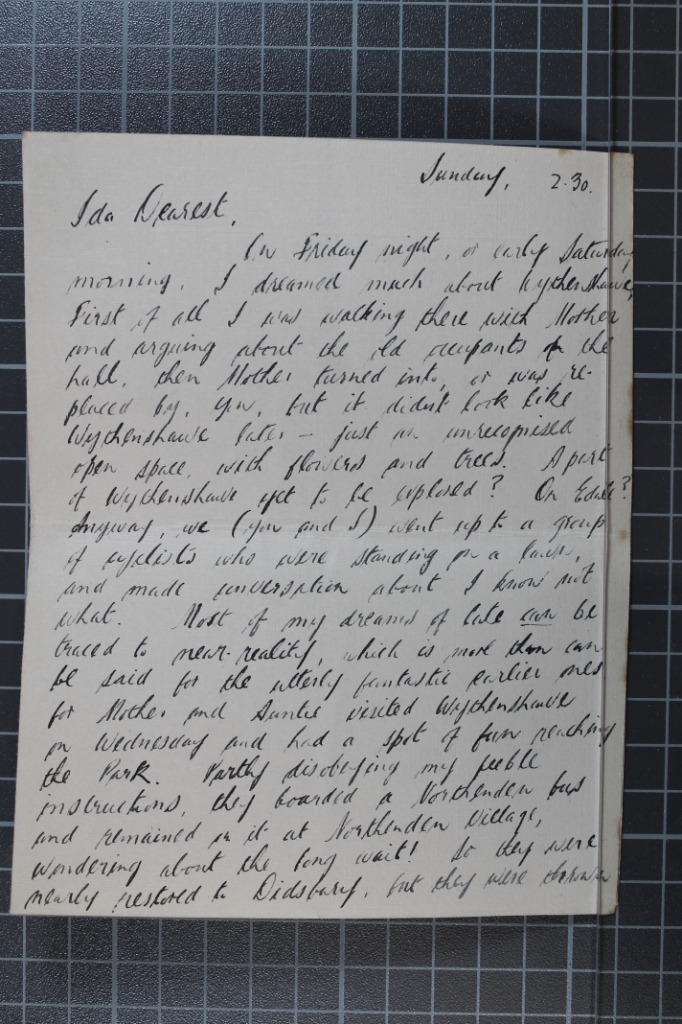 Sunday, 2.30.
Ida Dearest,
On Friday night, or early Saturday
morning, I dreamed much about Wythenshawe,
First of all I was walking there with Mother
and arguing about the old occupants of the
hall, then Mother turned into, or was re-
placed by, you, but it didn't look like
Wythenshawe later – just an unrecognised
open space, with flowers and trees. A part
of Wythenshawe yet to be explored? Or Edale?
Anyway, we (you and I) went up to a group
of cyclists who were standing on a lawn,
and made conversation about I know not
what. Most of my dreams of late can be
traced to near-reality, which is more than can
be said for the utterly fantastic earlier ones
for Mother and Auntie visited Wythenshawe
on Wednesday and had a spot of fun reaching
the Park. Partly disobeying my feeble
instructions, they boarded a Northenden bus
and remained in it at Northenden Village,
wondering about the long wait! So they were
nearly restored to Didsbury, but they were thrown